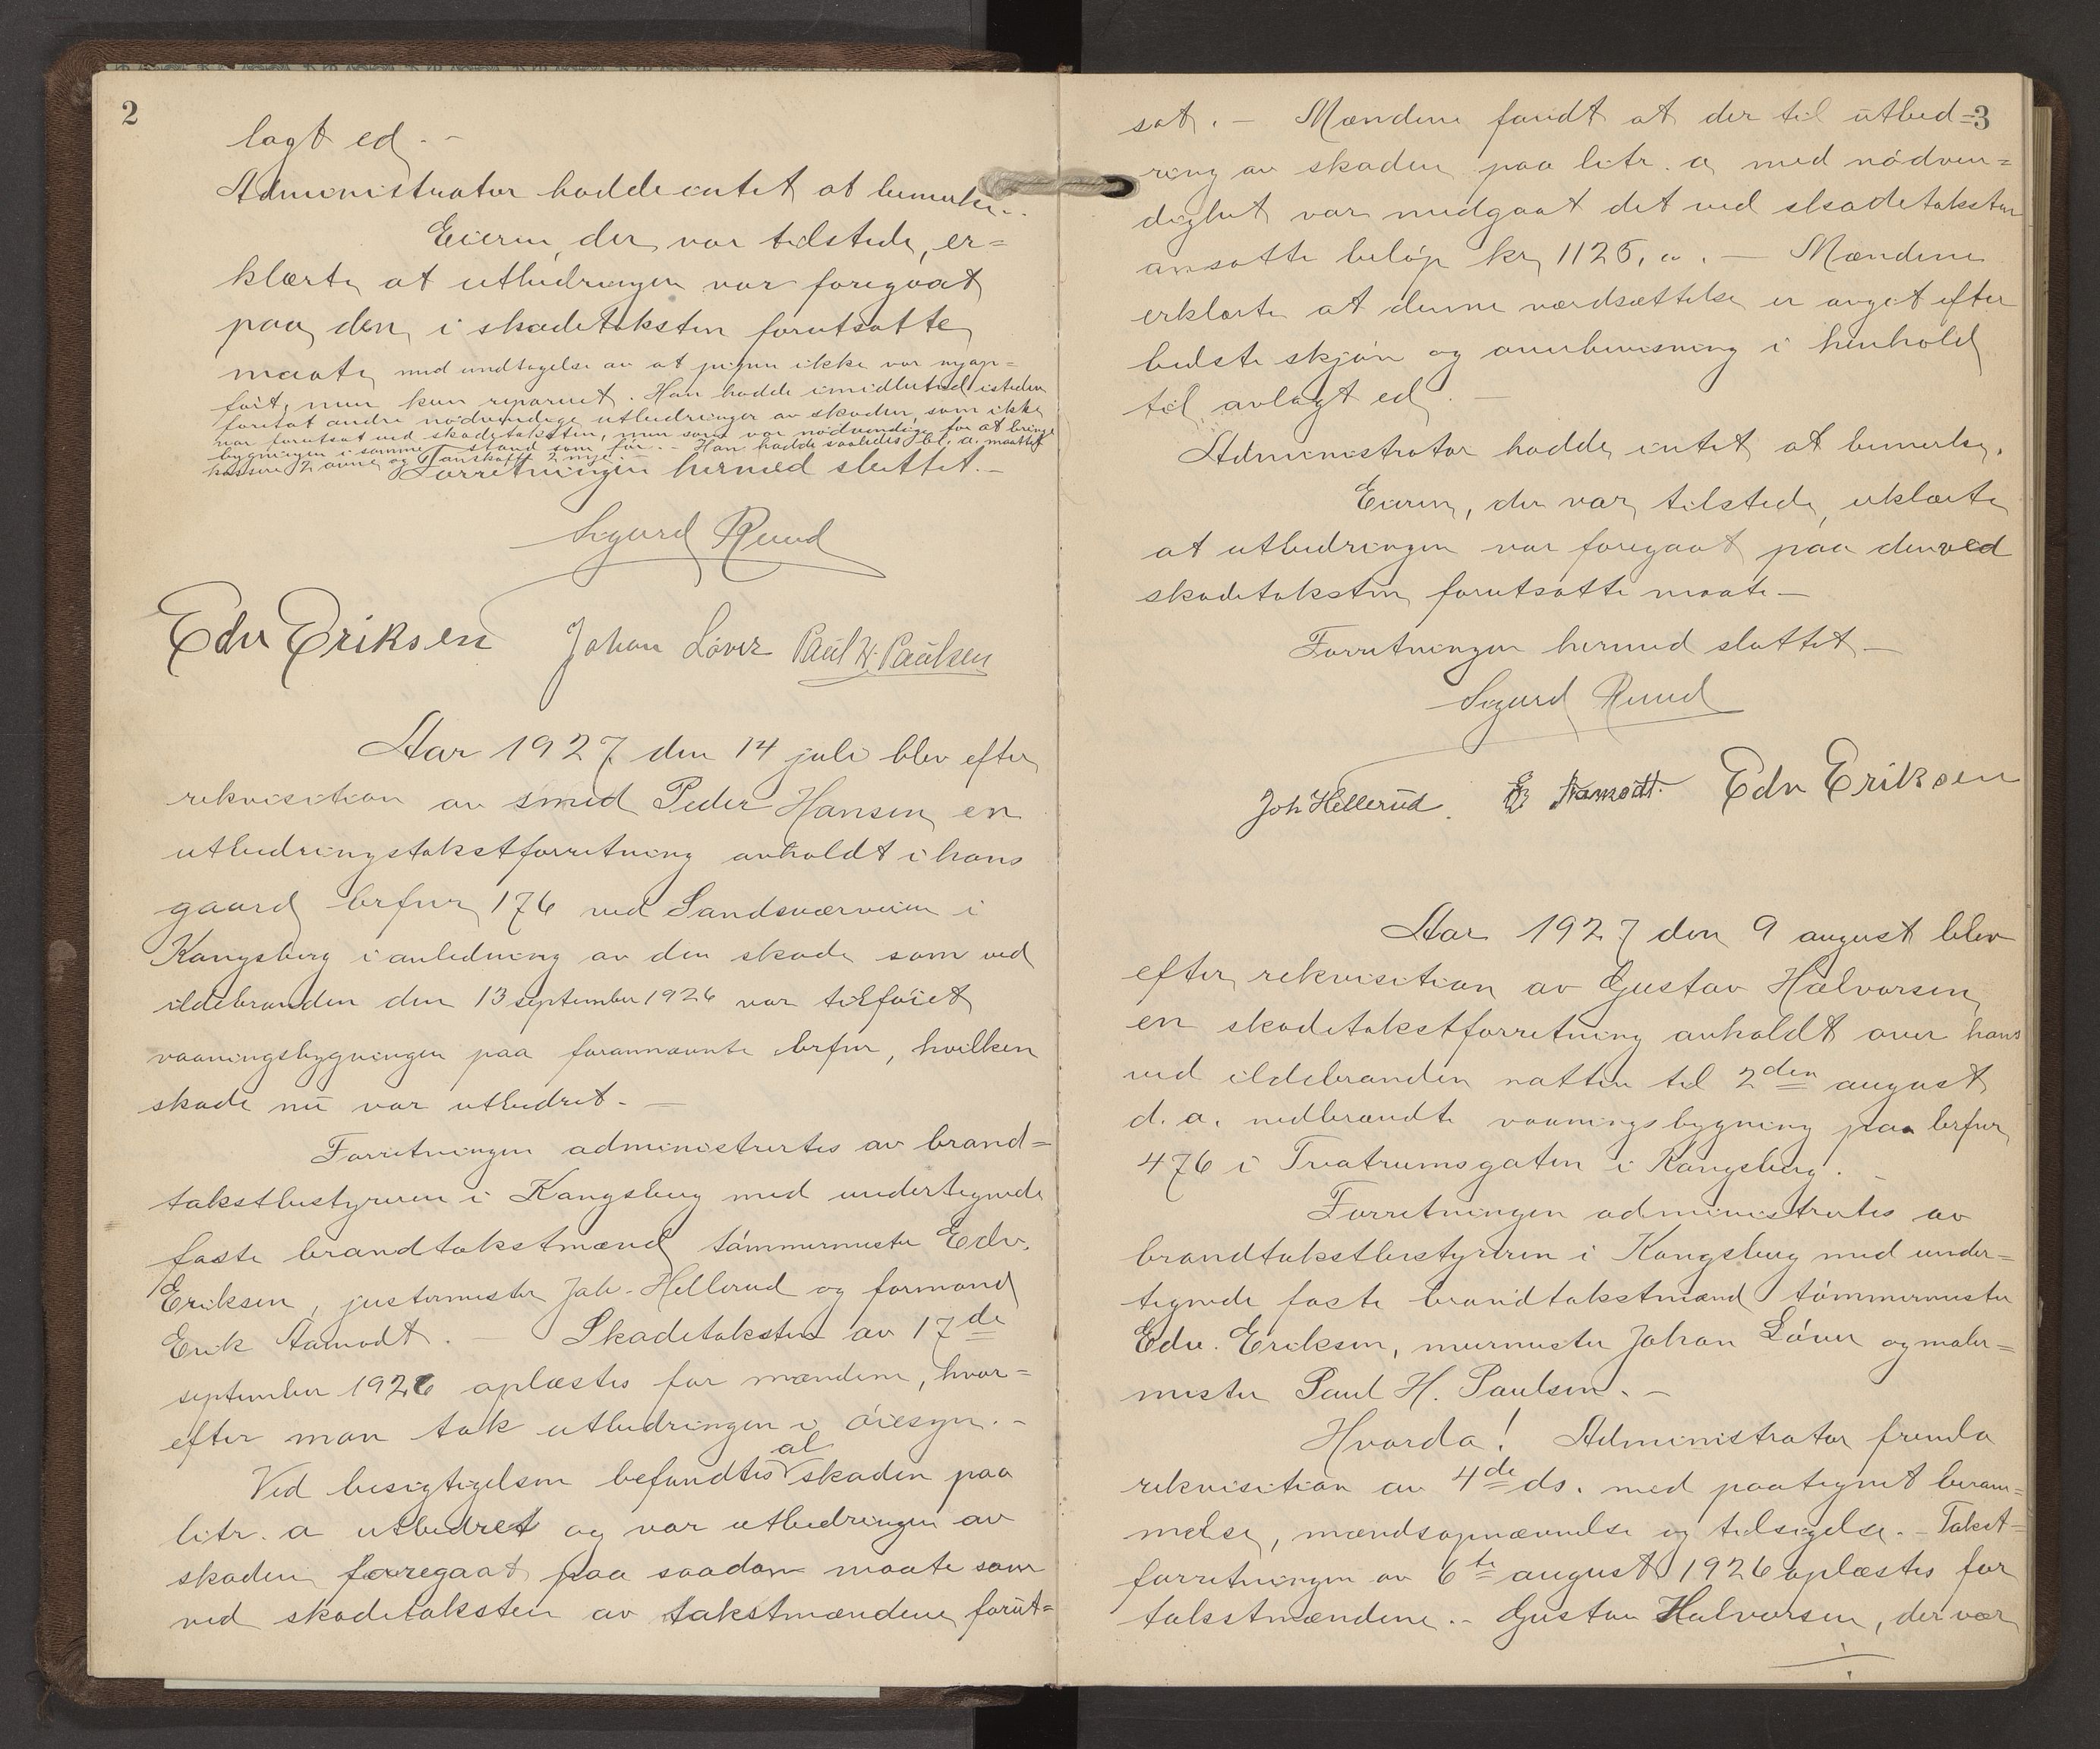 2
lagt ed. -
Administrator hadde intet at bemerke. -
Eieren, der var tilstede, er=
klærte at utbedringen var foregaat
paa den i skadetaksten forutsatte
maate med undtagelse av at pipen ikke var nyop=
ført, men kun reparert. Han hadde imidlertid isteden
foretat andre nødvendige utbedringer av skaden, som ikke
var forutsat ved skadetaksten, men som var nødvendige for at bringe
bygningen i samme stand som før. - Han hadde saaledes bl. a. maattet
kassere 2 ovne og anskaffe 2 nye. -
Forretningen hermed sluttet. -
Sigurd Ruud
Edv Eriksen Johan Løver Paul H. Paulsen
Aar 1927 den 14 juli blev efter
rekvisition av smed Peder Hansen en
utbedringstakstforretning avholdt i hans
gaard brfnr 176 ved Sandsværveien i
Kongsberg i anledning av den skade som ved
ildebranden den 13 september 1926 var tilføiet
vaaningsbygningen paa forannævnte brfnr, hvilken
skade nu var utbedret. -
Forretningen administrertes av brand=
takstbestyreren i Kongsberg med undertegnede
faste brandtakstmænd tømmermester Edv.
Eriksen, justermester Joh. Hellerud og formand
Erik Aamodt. - Skadetaksten av 17de
september 1926 oplæstes for mændene, hvor=
efter man tok utbedringen i øiesyn. -
Ved besigtigelsen befandtes al skaden paa
litr. a utbedret og var utbedringen av
skaden foregaat paa saadan maate som
ved skadetaksten av takstmændene forut=
3
sat. - Mændene fandt at der til utbed=
ring av skaden paa litr. a med nødven=
dighet var medgaat det ved skadetaksten
ansatte beløp kr 1125,00. - Mændene
erklærte at denne værdsættelse er avgit efter
bedste skjøn og overbevisning i henhold
til avlagt ed. -
Administrator hadde intet at bemerke.
Eieren, der var tilstede, erklærte
at utbedringen var foregaat paa den ved
skadetaksten forutsatte maate -
Forretningen hermed sluttet -
Sigurd Ruud
Joh Hellerud. E Aamodt. Edv Eriksen
Aar 1927 den 9 august blev
efter rekvisition av Gustav Halvorsen
en skadetakstforretning avholdt over hans
ved ildebranden natten til 2den august
d. a. nedbrændte vaaningsbygning paa brfnr
476 i Treatrumsgaten i Kongsberg. -
Forretningen administrertes av
brandtakstbestyreren i Kongsberg med under=
tegnede faste brandtakstmænd tømmermester
Edv. Eriksen, murmester Johan Løver og maler=
mester Paul H. Paulsen. -
Hvorda! Administrator fremla
rekvisition av 4de ds. med paategnet beram=
melse, mændsopnævnelse og tilsigelse. - Takst=
forretningen av 6te august 1926 oplæstes for
takstmændene. - Gustav Halvorsen, der var